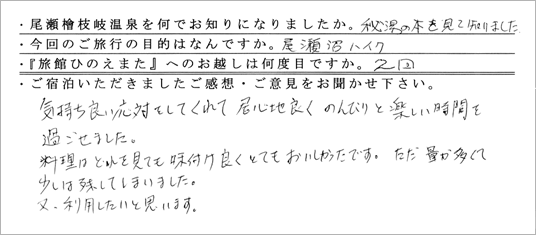 ・尾瀬檜枝岐温泉を何でお知りになりましたか。秘湯の本を見て知りました
・今回のご旅行の目的はなんですか。尾瀬沼ハイク
・『旅館ひのえまた』へのお越しは何度目ですか。2回
・ご宿泊いただきましたご感想・ご意見をお聞かせ下さい。
気持ち良い応対をしてくれて 居心地良く のんびりと楽しい時間を
過ごせました。
料理はどれを見ても味付け良くとてもおいしかったです。ただ量が多くて
少しは残してしまいました。
又、利用したいと思います。